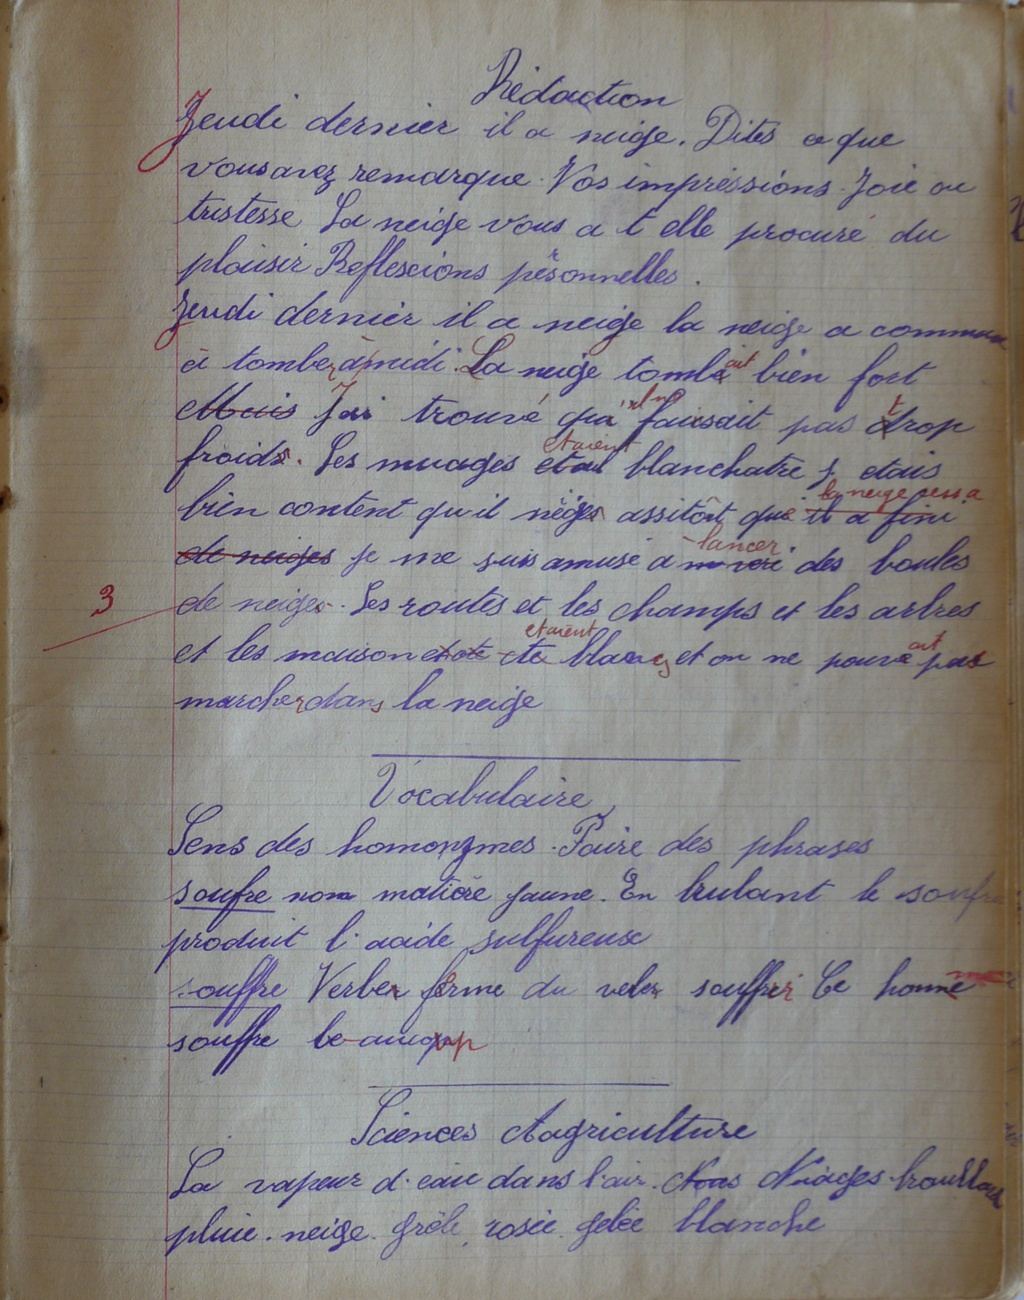 Rédaction
Jeudi dernier il a neige. Dites ce que
vous avez remarque. Vos impressions. Joie ou
tristesse La neige vous a t elle procuré du
plaisir Reflescions pérsonnelles.
Jeudi dernier il a neige la neige a
à tomber à midi. La neige tombait bien fort
Mais J'ai trouvé qu'il ne faisait pas trop
froid. Les nuages etaient blanchatre j etais
bien content qu il assitôt que la neige cessa
il a fini
de neiges je me suis amusé a lancer des boules
3
de neige. Les routes et les champs et les arbres
et les maison etaient blancs et on ne pouvait pas
marcher dans la neige
Vocabulaire
Sens des homonymes. Faire des phrases
soufre nom matière jaune. En brulant le soufre
produit l'acide sulfureuse
souffre Verbe forme du verbe souffrir Ce homme
souffre beaucoup
Sciences Aagriculture
La vapeur d'eau dans l'air. Nuages brouillard
pluie. neige. grêle, rosée gelée blanche